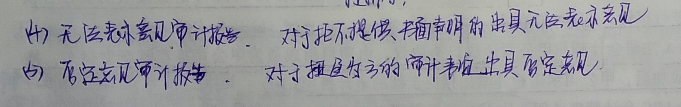 (4) 无法表示意见审计报告. 对于拒不提供书面声明的出具无法表示意见
(5) 否定意见审计报告. 对于拒为的审计事项出具否定意见.